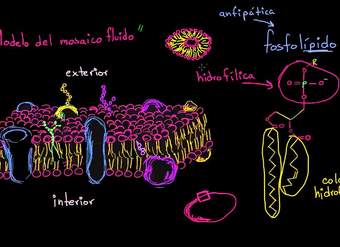 Modelo del mosaico fluido"
anfipática
fosfolípido
exterior
hidrofílica
R
O
O-P-O-
O
O
interior
cola
hidrof